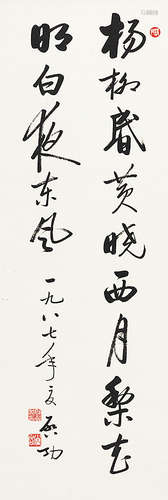 杨柳昏黄晓西月梨花
明白夜东风 一九八七年夏 启功